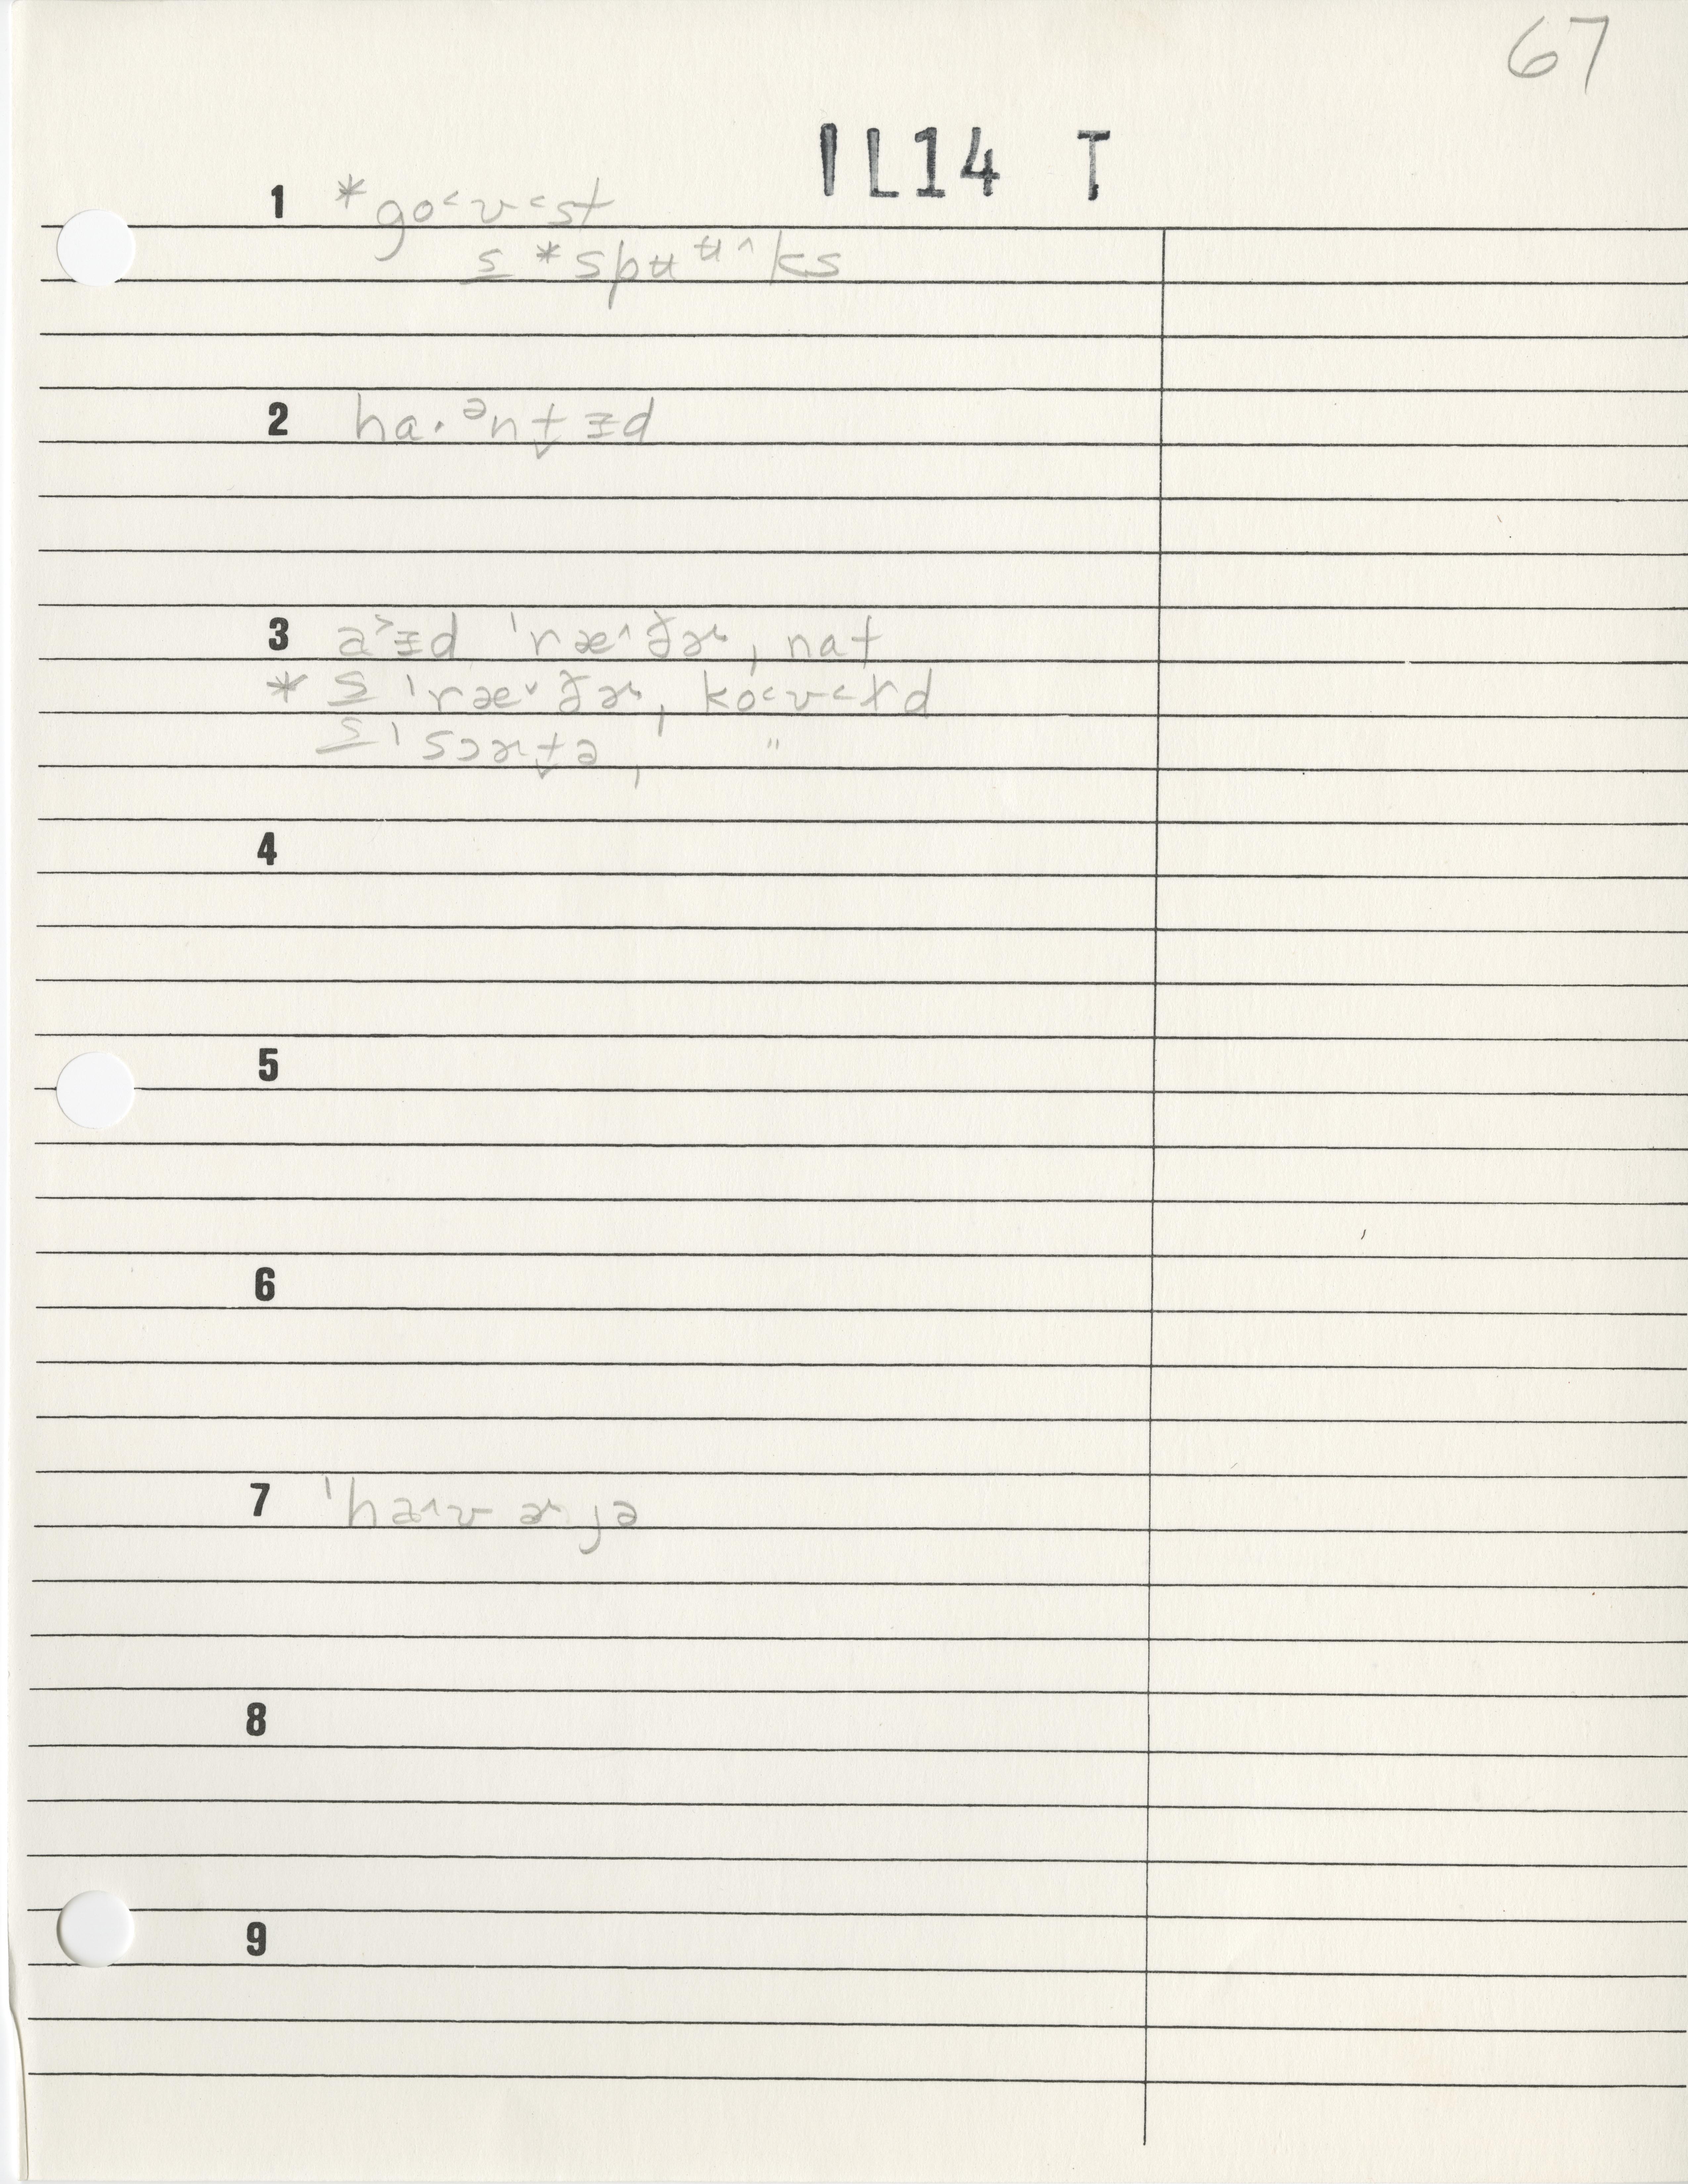 67
IL14 T
1 *go˂ʊ˂st
s̲ *spʉᵾ˄ks
2 ha·ᵊnt̬ɪ̵d
3 a˃ɪ̵d ˈræ˄ðɚ, nat
* s̲ ˈræ˅ðɚ, ko˂ʊ˂ɫd
s̲ ˈsɔɚt̬ə, "
4
5
6
7 ˈha˄ʊ ɚ jə
8
9